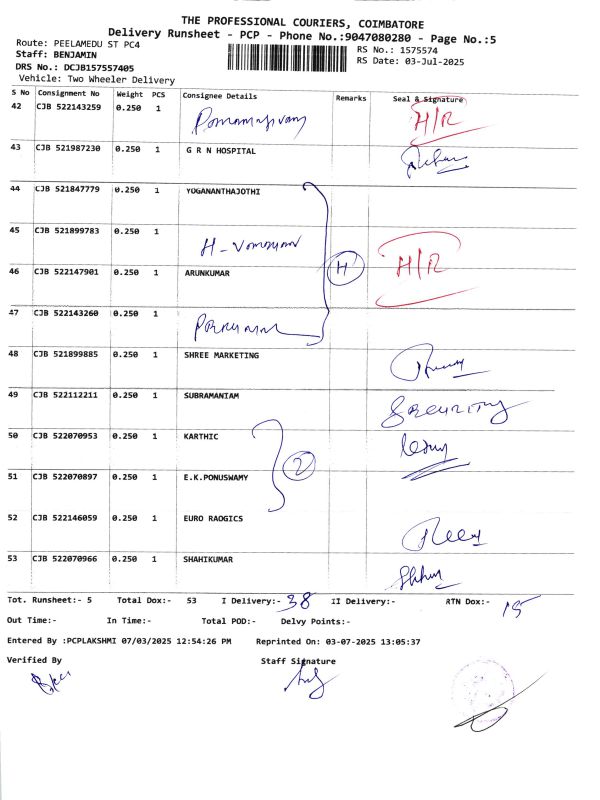 THE PROFESSIONAL COURIERS, COIMBATORE
Delivery Runsheet - PCP - Phone No.:9047080280 - Page No.:5
Route: PEELAMEDU ST PC4
Staff: BENJAMIN
DRS No.: DCJB157557405
Vehicle: Two Wheeler Delivery
RS No.: 1575574
RS Date: 03-Jul-2025
S No Consignment No Weight PCS Consignee Details Remarks Seal & Signature
42 CJB 522143259 0.250 1 H/R
43 CJB 521987230 0.250 1 G R N HOSPITAL
44 CJB 521847779 0.250 1 YOGANANTHAJOTHI
45 CJB 521899783 0.250 1
46 CJB 522147901 0.250 1 ARUNKUMAR H H/R
47 CJB 522143260 0.250 1
48 CJB 521899885 0.250 1 SHREE MARKETING
49 CJB 522112211 0.250 1 SUBRAMANIAM
50 CJB 522070953 0.250 1 KARTHIC
2
51 CJB 522070897 0.250 1 E.K.PONUSWAMY
52 CJB 522146059 0.250 1 EURO RAOGICS
53 CJB 522070966 0.250 1 SHAHIKUMAR
Tot. Runsheet:- 5 Total Dox:- 53 I Delivery:- 38 II Delivery:- RTN Dox:- 15
Out Time:- In Time:- Total POD:- Delvy Points:-
Entered By :PCPLAKSHMI 07/03/2025 12:54:26 PM Reprinted On: 03-07-2025 13:05:37
Verified By Staff Signature